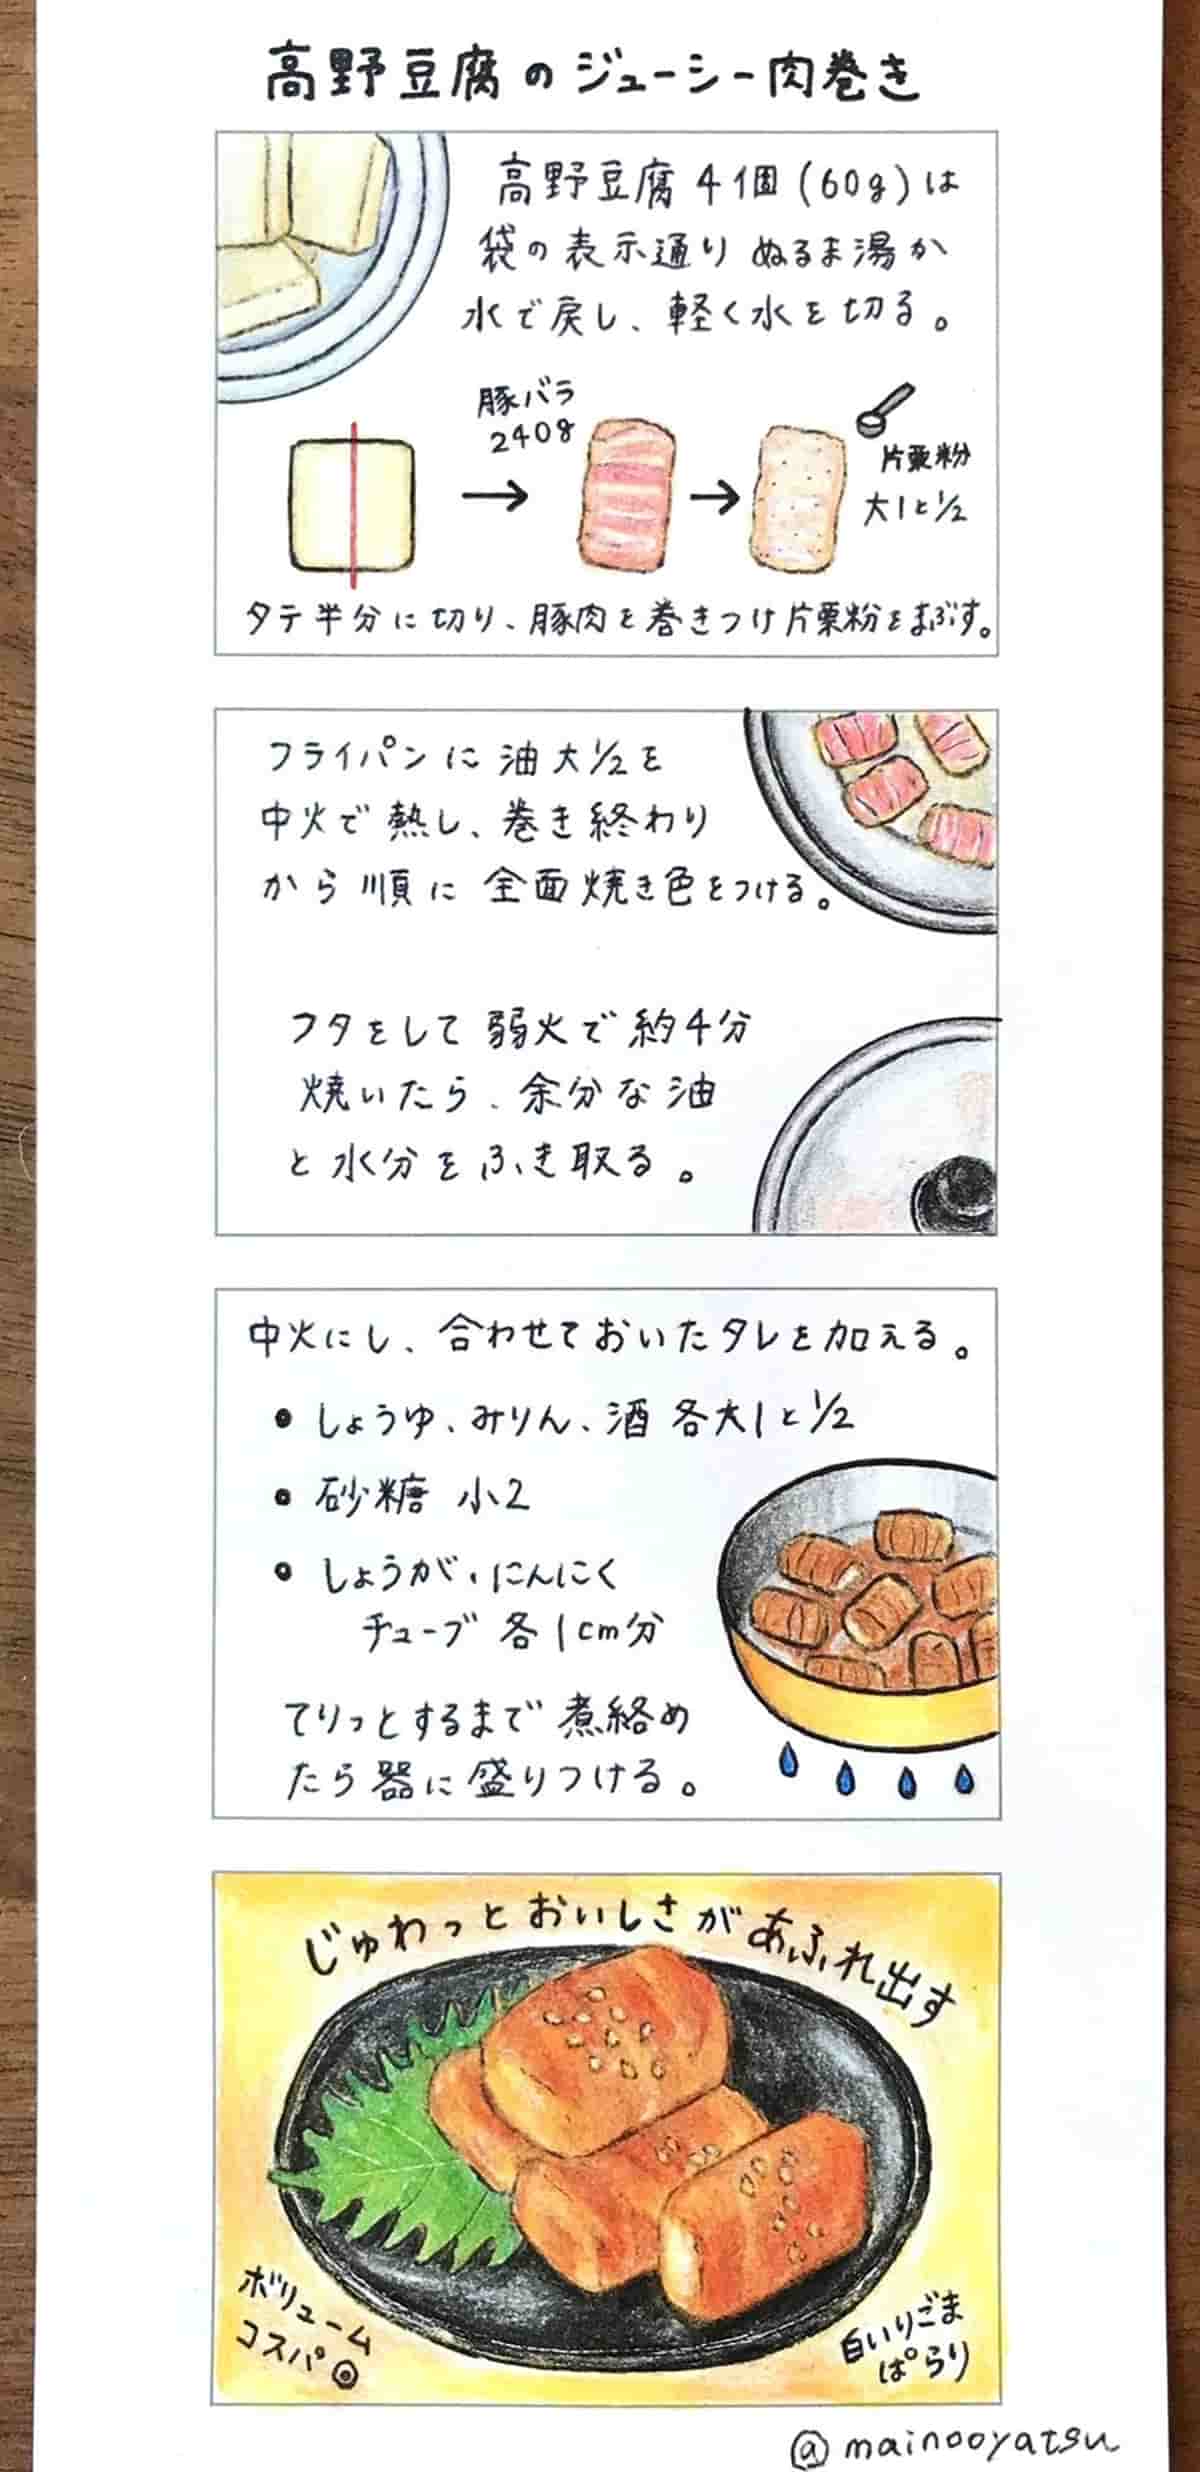 高野豆腐のジューシー肉巻き
高野豆腐4個(60g)は
袋の表示通りぬるま湯か
水で戻し、軽く水を切る。
豚バラ
240g
片栗粉
大1と1/2
タテ半分に切り、豚肉を巻きつけ片栗粉をまぶす。
フライパンに油大1/2を
中火で熱し、巻き終わり
から順に全面焼き色をつける。
フタをして弱火で約4分
焼いたら、余分な油
と水分をふき取る。
中火にし、合わせておいたタレを加える。
• しょうゆ、みりん、酒 各大1と1/2
• 砂糖 小2
• しょうが・にんにく
チューブ 各1cm分
てりっとするまで煮絡め
たら器に盛りつける。
じゅわっとおいしさがあふれ出す
ボリューム
コスパ◎
白いりごま
ぱらり
@mainooyatsu